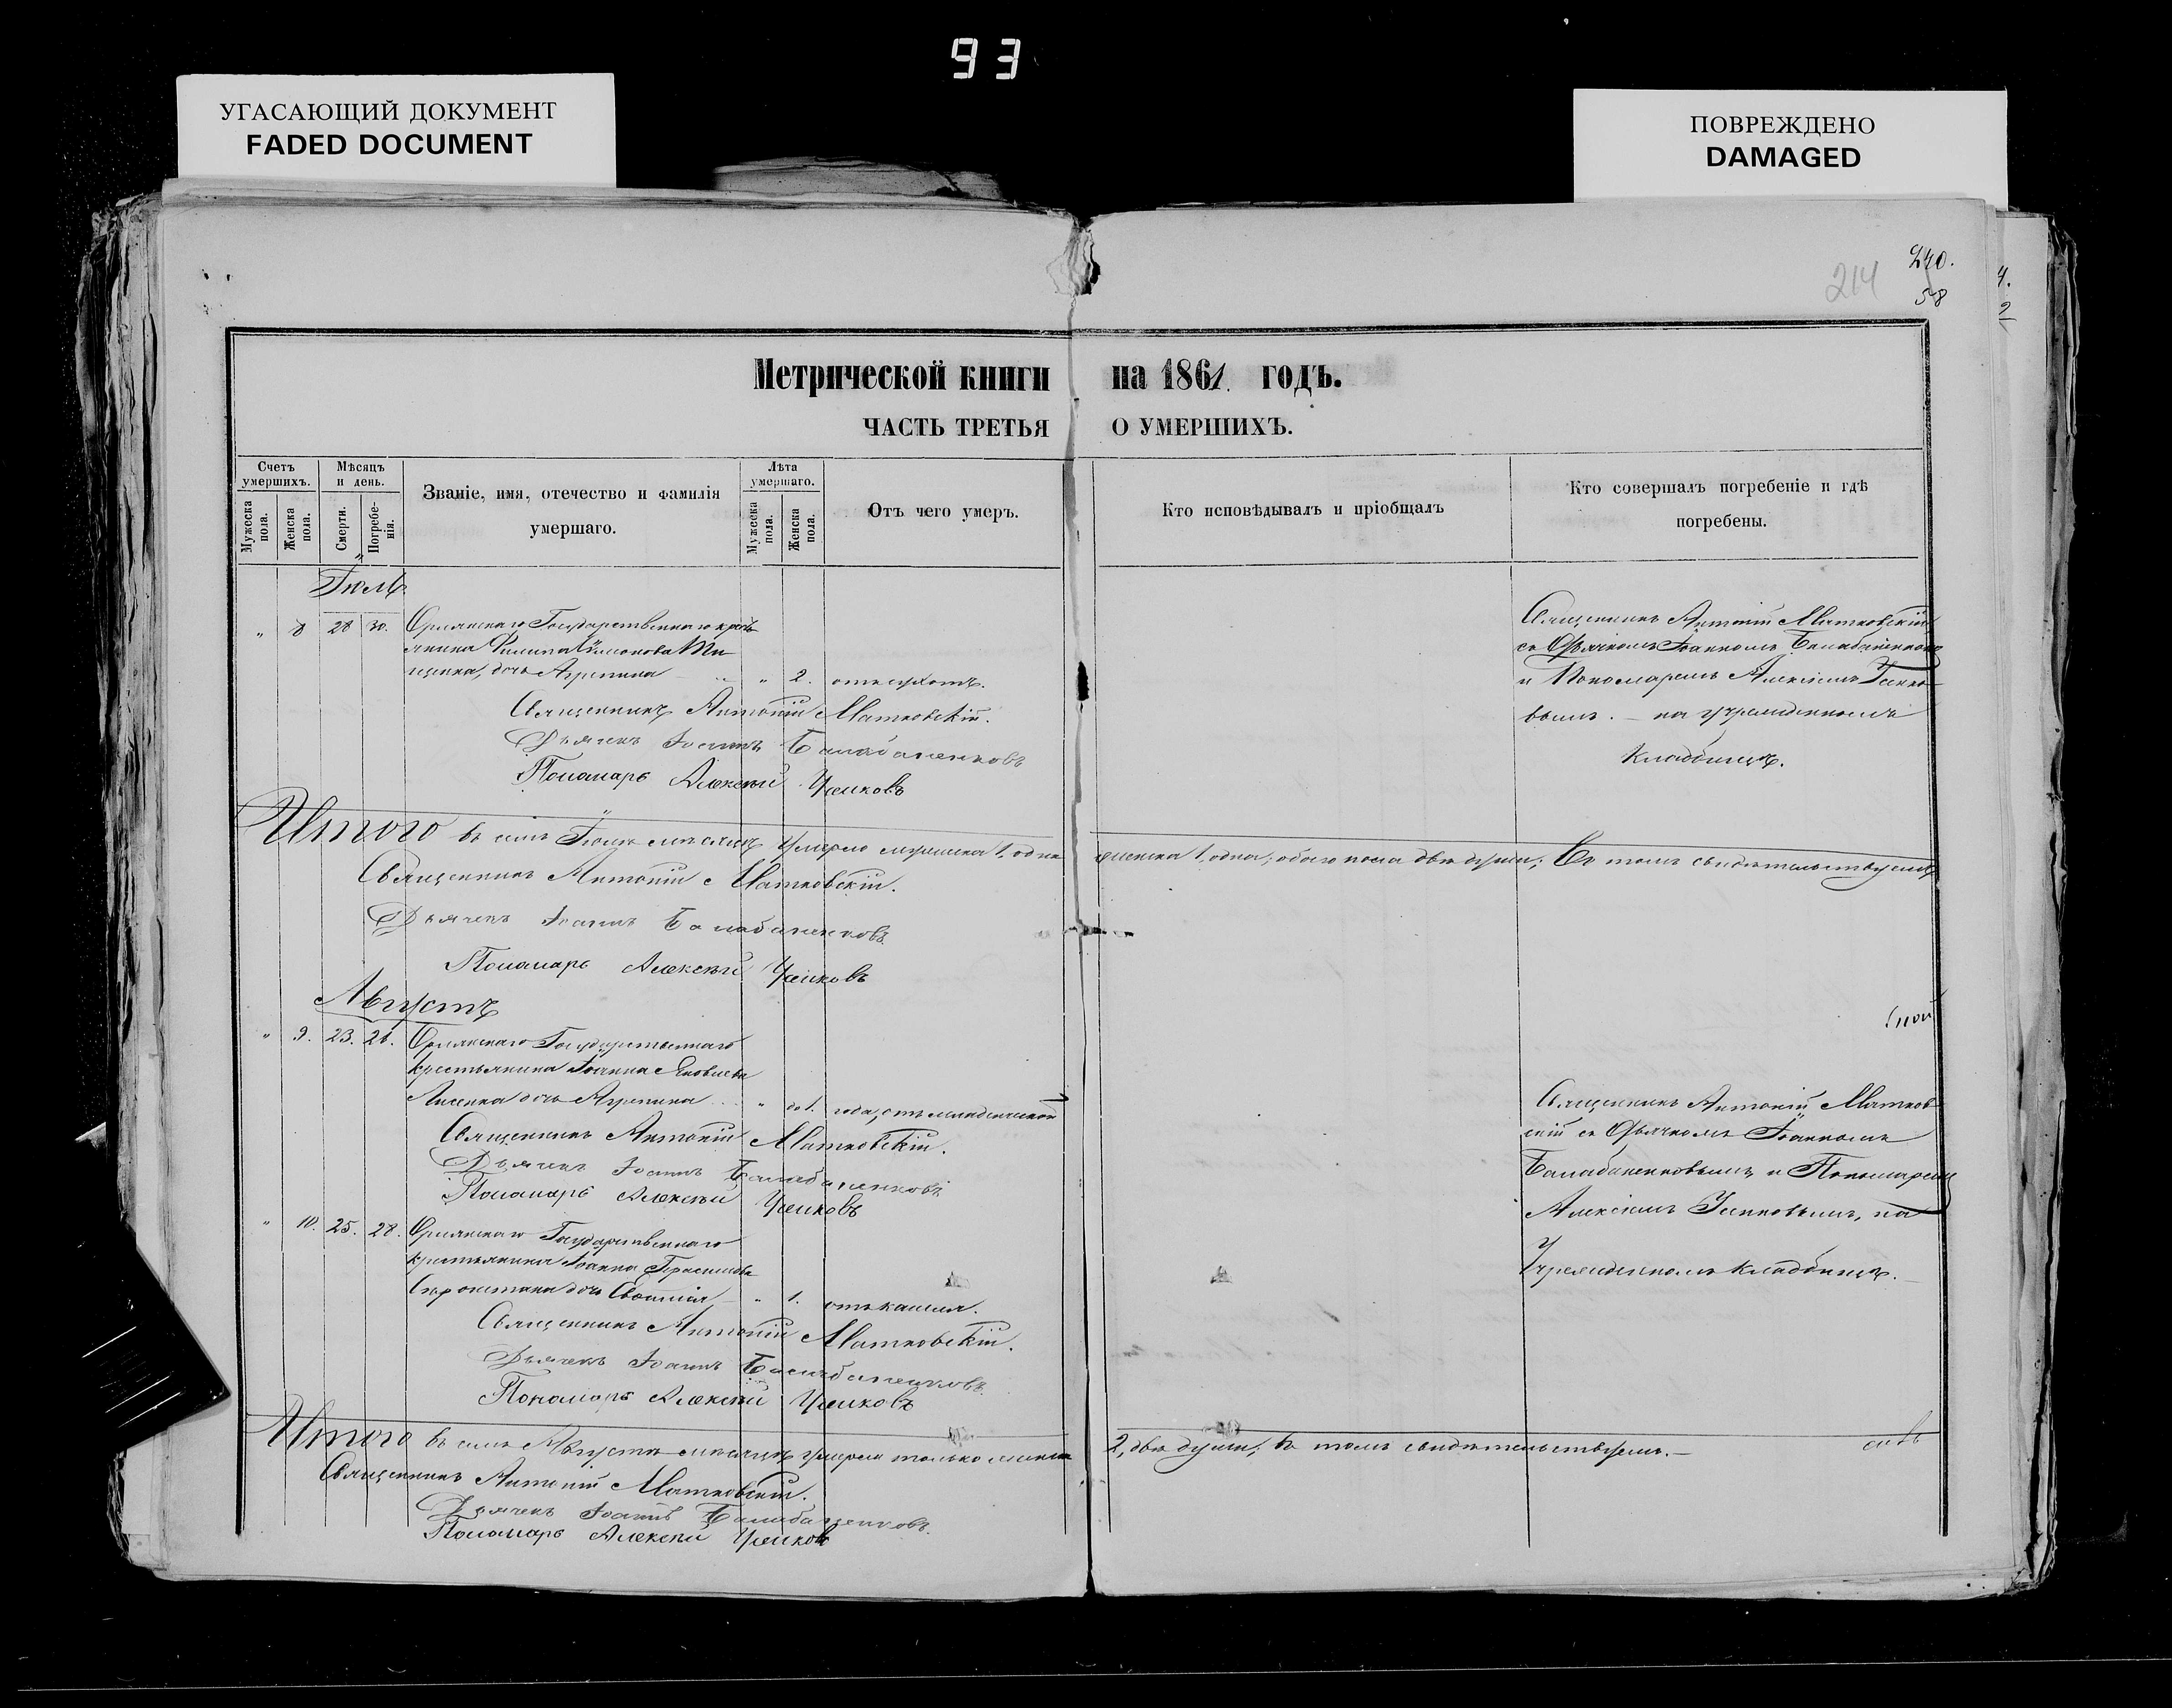 93
УГАСАЮЩИЙ ДОКУМЕНТ
FADED DOCUMENT
ПОВРЕЖДЕНО
DAMAGED
240.
214
58
4.
2
Метрической книги на 1861. годъ.
ЧАСТЬ ТРЕТЬЯ О УМЕРШИХЪ.
Счетъ умершихъ.
Мужеска пола.
Женска пола.
Мѣсяцъ и день.
Смерти.
Погребенія.
Званіе, имя, отечество и фамилія умершаго.
Лѣта умершаго.
Мужеска пола.
Женска пола.
Отъ чего умеръ.
Кто исповѣдывалъ и пріобщалъ
Кто совершалъ погребеніе и гдѣ погребены.
Іюль
„ 8 28 30. Орлянскаго Государственнаго кресть
янина Филипа Симонова Ми
щенка, дочь Агрепина „ 2. отъ сухотъ.
Священникъ Антоній Матковскій.
Дьячекъ Іоаннъ Балабаненковъ
Пономарь Алексѣй Усиковъ
Священникъ Антоній Матковскій
съ Дьячкомъ Іоанномъ Балабаненковы
и Пономаремъ Алексіемъ Усико
вымъ. – на учрежденномъ
кладбищѣ.
Итого въ семъ Іюлѣ мѣсяцѣ умерло мужеска 1, одна женска 1, одна; обоего пола двѣ души; Въ томъ свидѣтельствуемъ
Священникъ Антоній Матковскій.
Дьячекъ Іоаннъ Балабаненковъ
Пономарь Алексѣй Усиковъ
Августъ
„ 9. 23. 26. Орлянскаго Государственнаго
крестьянина Іоанна Яковлева
Лисенка дочь Агрепина „ до 1. года, отъ младенческой
Священникъ Антоній Матковскій.
Дьячекъ Іоаннъ Балабаненковъ
Пономарь Алексѣй Усиковъ
Священникъ Антоній Матков
скій съ Дьячкомъ Іоанномъ
Балабаненковымъ и Пономаремъ
Алексіемъ Усиковымъ, на
Учрежденномъ кладбищѣ.
„ 10. 25. 28. Орлянскаго Государственнаго
крестьянина Іоанна Герасимова
дочь „ 1. отъ кашля.
Священникъ Антоній Матковскій.
Дьячекъ Іоаннъ Балабаненковъ
Пономарь Алексѣй Усиковъ
Итого въ семъ Августѣ мѣсяцѣ умерло только женска 2, двѣ души, въ томъ свидѣтельствуемъ. –
Священникъ Антоній Матковскій.
Дьячекъ Іоаннъ Балабаненковъ.
Пономарь Алексѣй Усиковъ